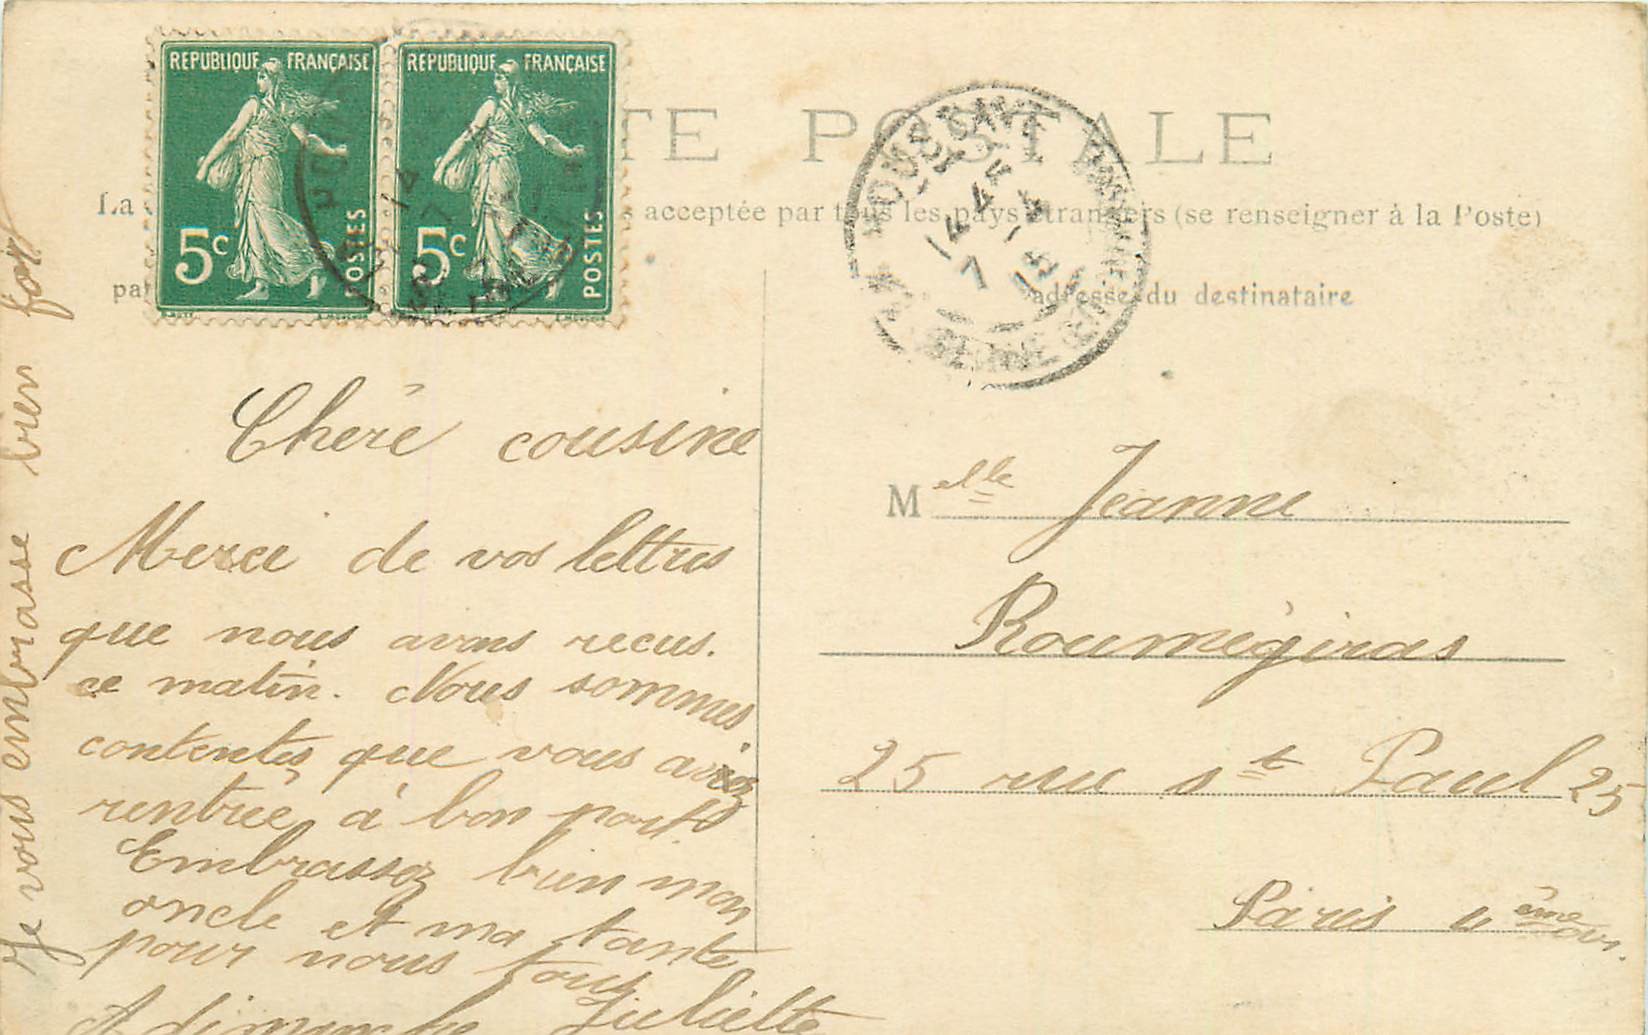 REPUBLIQUE FRANÇAISE
5c
POSTES
REPUBLIQUE FRANÇAISE
5c
POSTES
TE POSTALE
La s acceptée par tous les pays étrangers (se renseigner à la Poste)
adresse du destinataire
HOUSSAYE
14 4
7 15
SEINE
Chère cousine
Merci de vos lettres
que nous avons recus.
ce matin. Nous sommes
contentes que vous aviez
rentrée à bon port
Embrassez bien mon
oncle et ma tante
pour nous tous
A dimanche Juliette
Je vous embrasse bien fort
Melle Jeanne
Roumégiras
25 rue st Paul 25
Paris 4ème arr.